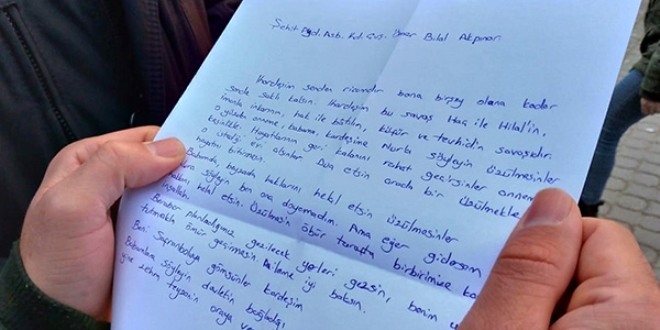 Şehit Ast. Ömer Bilal Akpınar.
Kardeşim senden ricamdır bana birşey olana kadar
sende saklı kalsın. Kardeşim bu savaş Haç ile Hilal'in,
imanla inkarının, hak ile bâtılın, küfür ve tevhidin savaşıdır.
O yüzden anneme, babama, kardeşime Nurla söyleyin üzülmesinler
kesinlikle. Hayatlarının geri kalanını rahat geçirsinler annem
o istediği evi alsınlar. Dua etsin arada bir üzülmekle
hayatını bitirmesin.
Babamda, haklarını helal etsin üzülmesinler
söyleyin ben ona doyamadım. Ama eğer gidersem
hakkını helal etsin. Üzülmesin öbür tarafta birbirimize
inşallah.
Beraber planladığımız gezilecek yerleri gezsin, benim
tutmakla ömür geçirmesin. iyi baksın.
Beni Safranbolu'ya gömsünler kardeşim
Babamlara söyleyin devletin bağladığı
yine teyzenin oraya